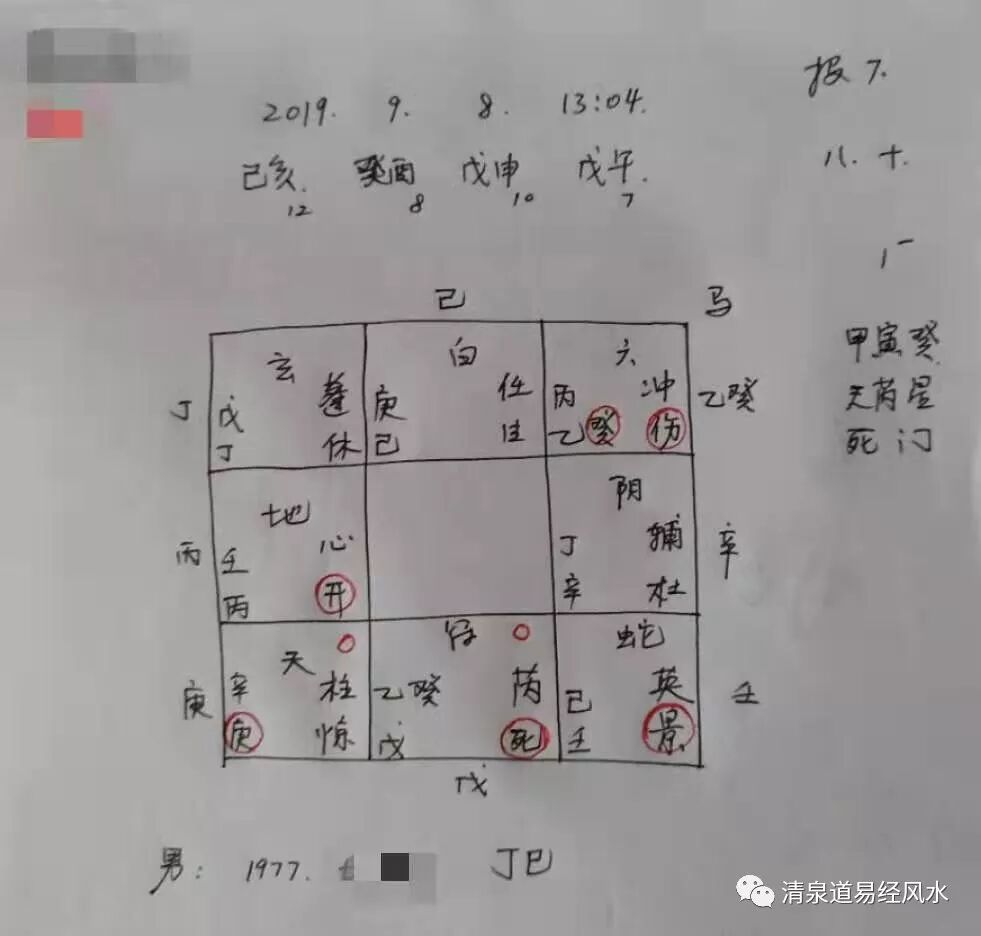 报7.
2019. 9. 8. 13:04.
己亥. 癸酉 戊申 戊午.
12 8 10 7
八. 十.
己 马
玄 白 六
丁 戊 蓬 庚 任 丙 冲 乙癸
丁 休 己 生 乙癸 伤
甲寅癸
天芮星
死门
地 阴
丙 壬 心 丁 辅 辛
丙 开 辛 杜
天 符 蛇
庚 辛 柱 乙癸 芮 己 英 壬
庚 惊 戊 死 壬 景
戊
男: 1977. 丁巳
清泉道易经风水